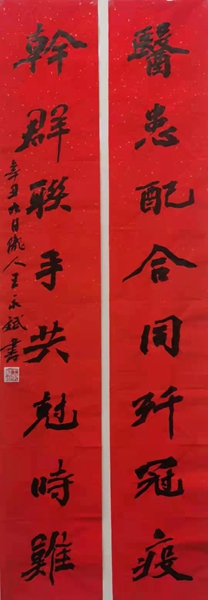 醫患配合同歼冠疫
幹群聯手共尅時難
辛丑九日儀人王永斌書